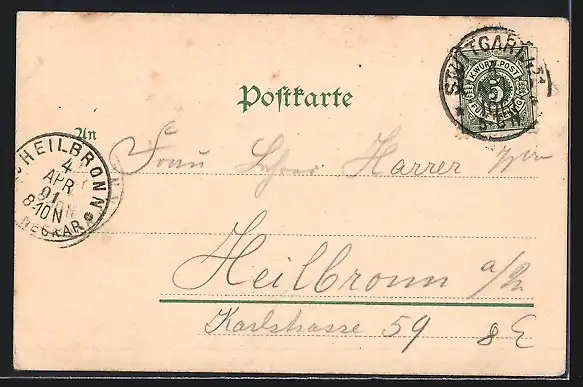 STUTTGART
K.WÜRTT.POST
5
FÜNF PFENNIG
Postkarte
An
HEILBRONN
4
APR
01
8-10N
NECKAR
Frau Lehrer Harrer
Heilbronn a/N
Karlstrasse 59